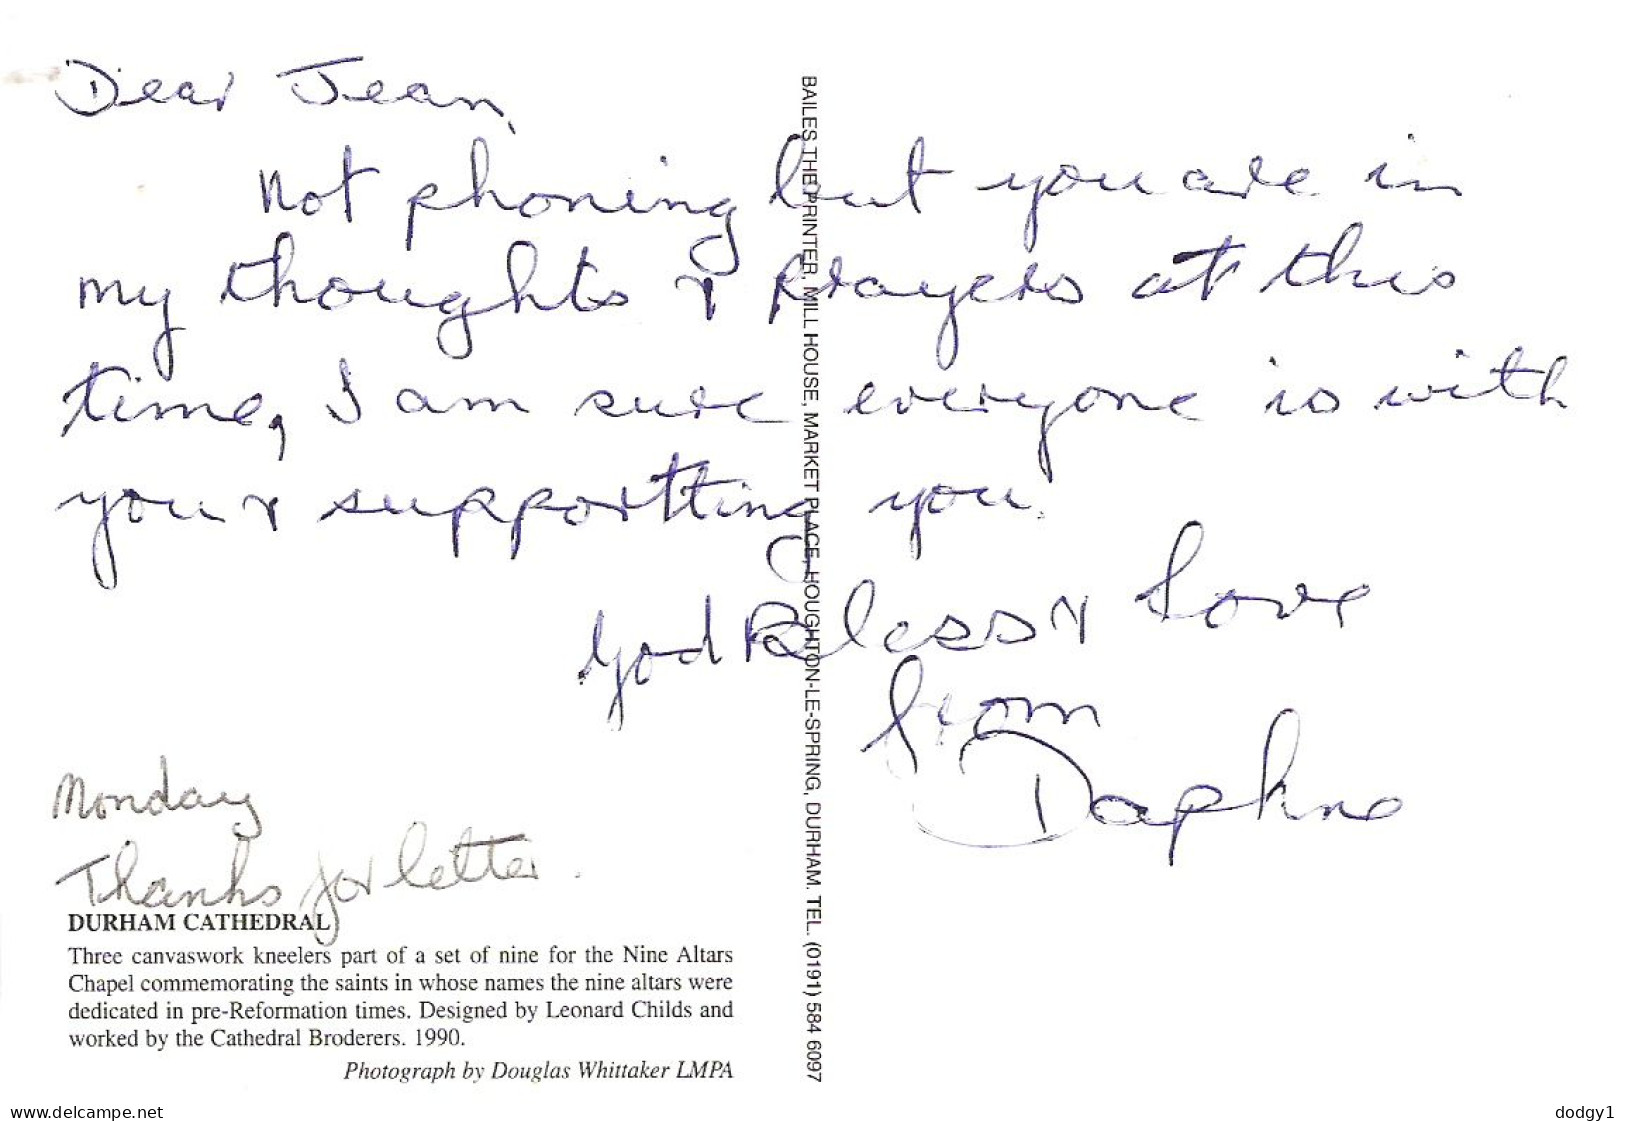 Dear Jean,
Not phoning but you are in
my thoughts & prayers at this
time, I am sure everyone is with
you & supportting you.
God Bless & Love
from
Daphne
Monday
Thanks for letter.
DURHAM CATHEDRAL
Three canvaswork kneelers part of a set of nine for the Nine Altars
Chapel commemorating the saints in whose names the nine altars were
dedicated in pre-Reformation times. Designed by Leonard Childs and
worked by the Cathedral Broderers. 1990.
Photograph by Douglas Whittaker LMPA
BAILES THE PRINTER, MILL HOUSE, MARKET PLACE, HOUGHTON-LE-SPRING, DURHAM. TEL. (0191) 584 6097
www.delcampe.net
dodgy1